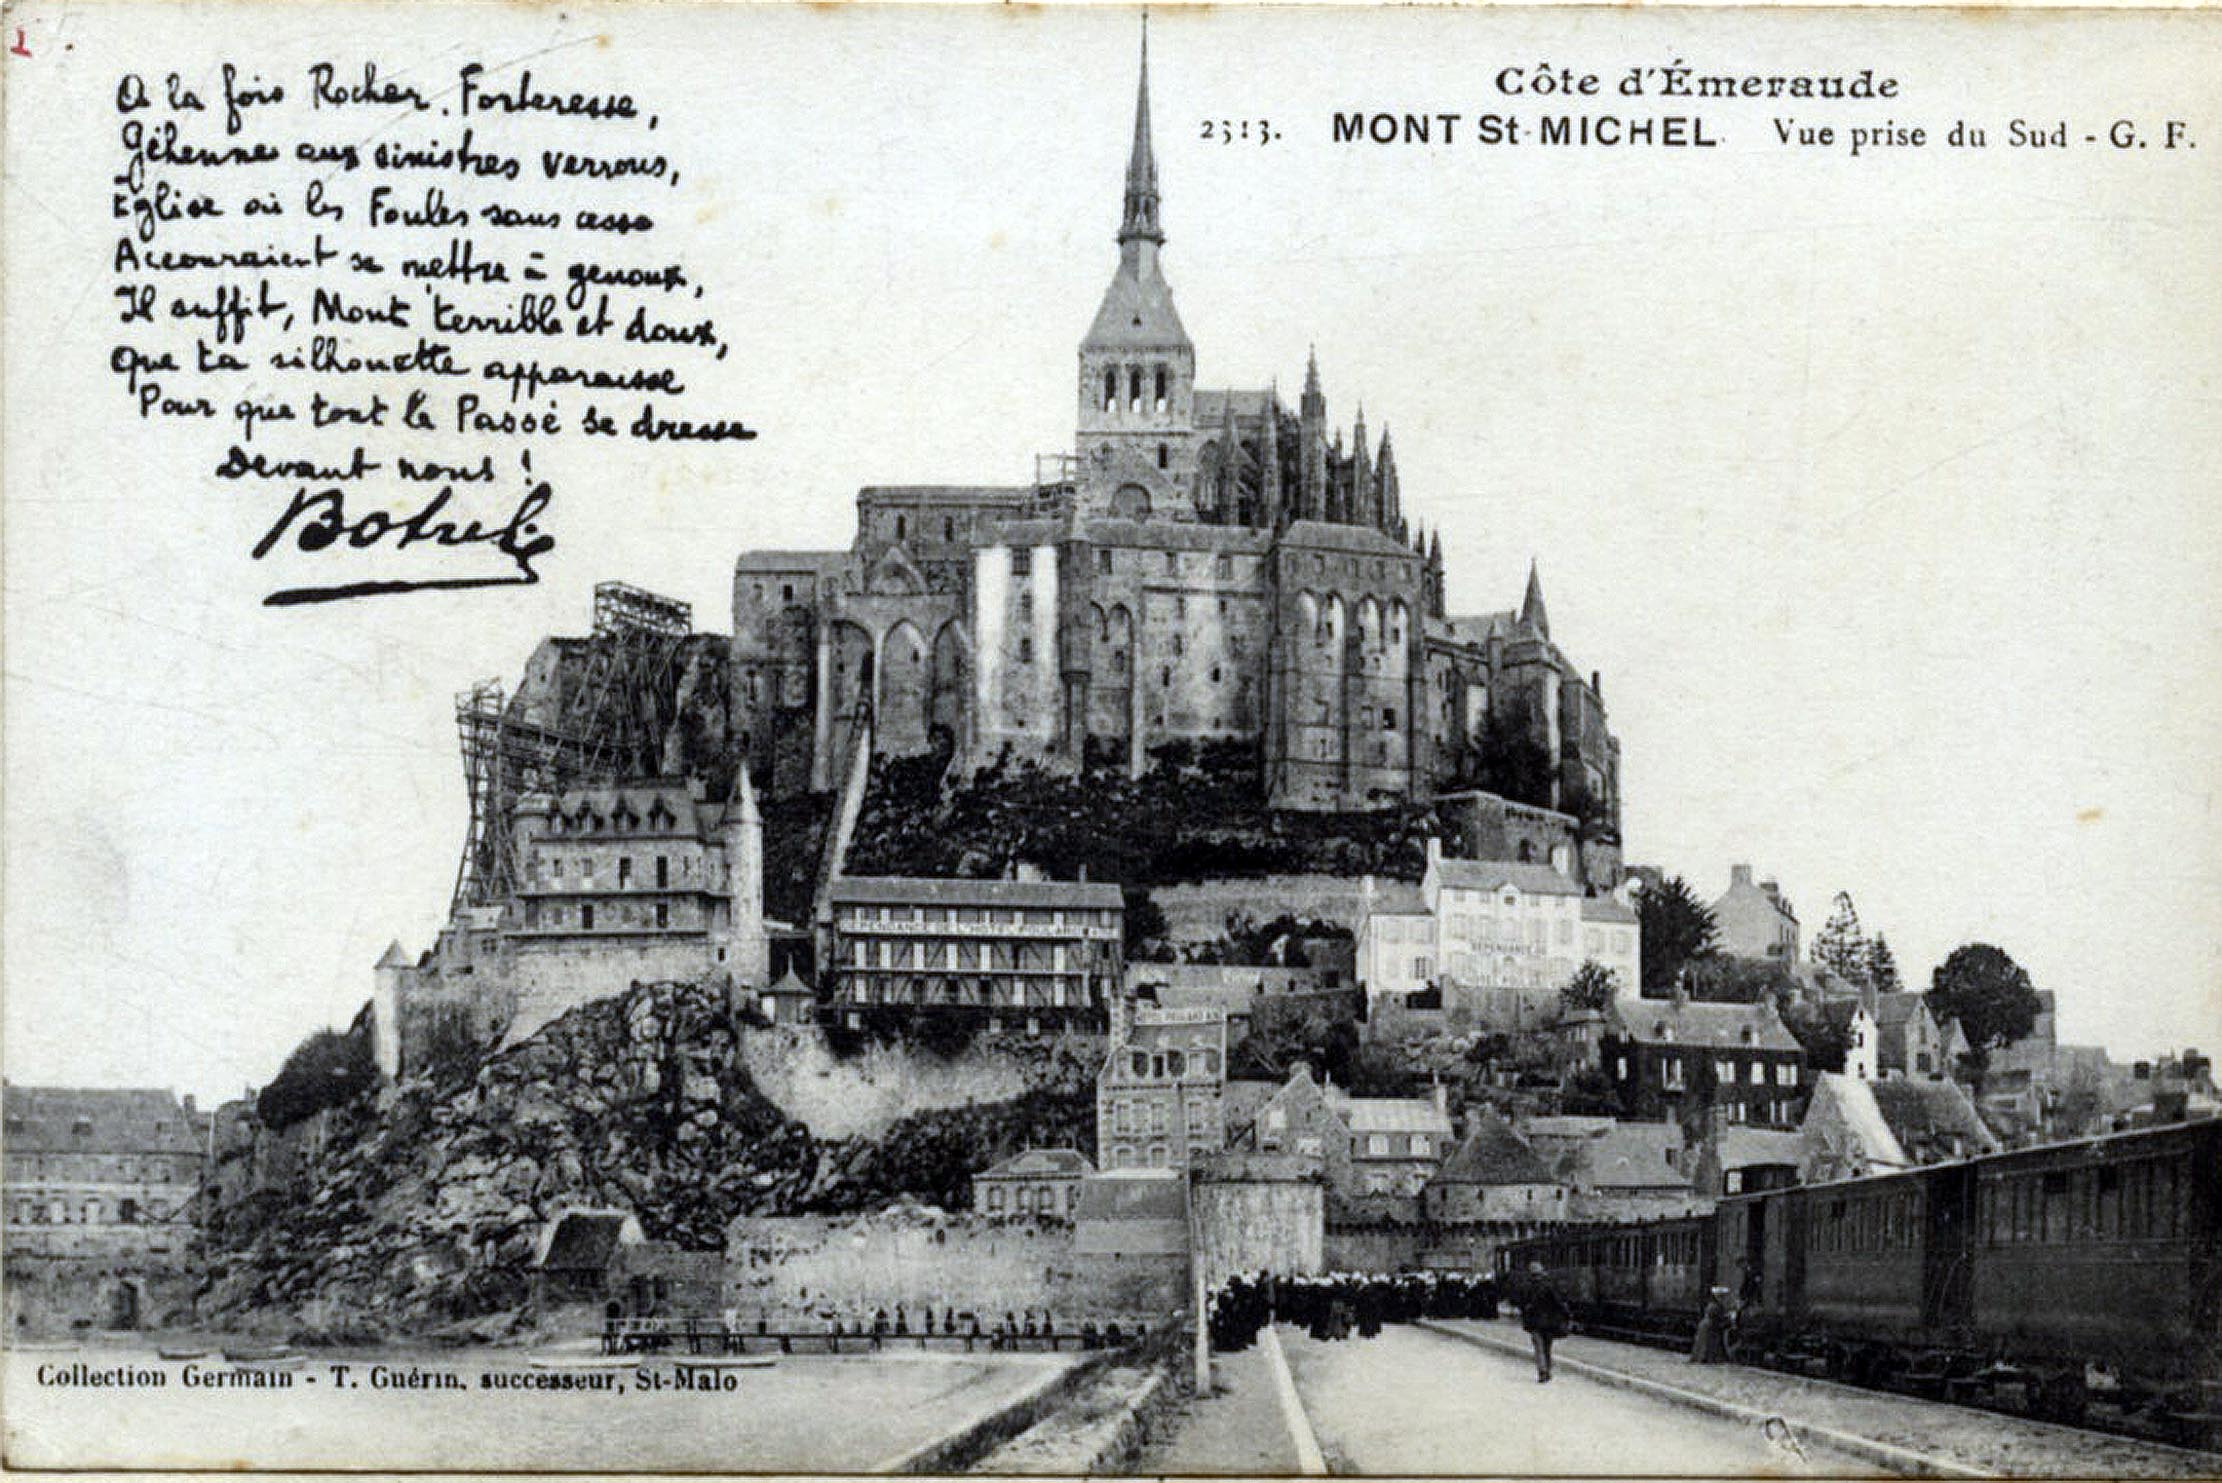 A la fois Rocher, Forteresse,
Géhenne aux sinistres verrous,
Église où les Foules sans cesse
Accouraient se mettre à genoux,
Il suffit, Mont terrible et doux,
Que ta silhouette apparaisse
Pour que tout le Passé se dresse
Devant nous !
Botrel
Côte d'Émeraude
2313. MONT St-MICHEL. Vue prise du Sud - G. F.
DÉPENDANCE DE L'HOTEL POULARD
DÉPENDANCE
Collection Germain - T. Guérin, successeur, St-Malo